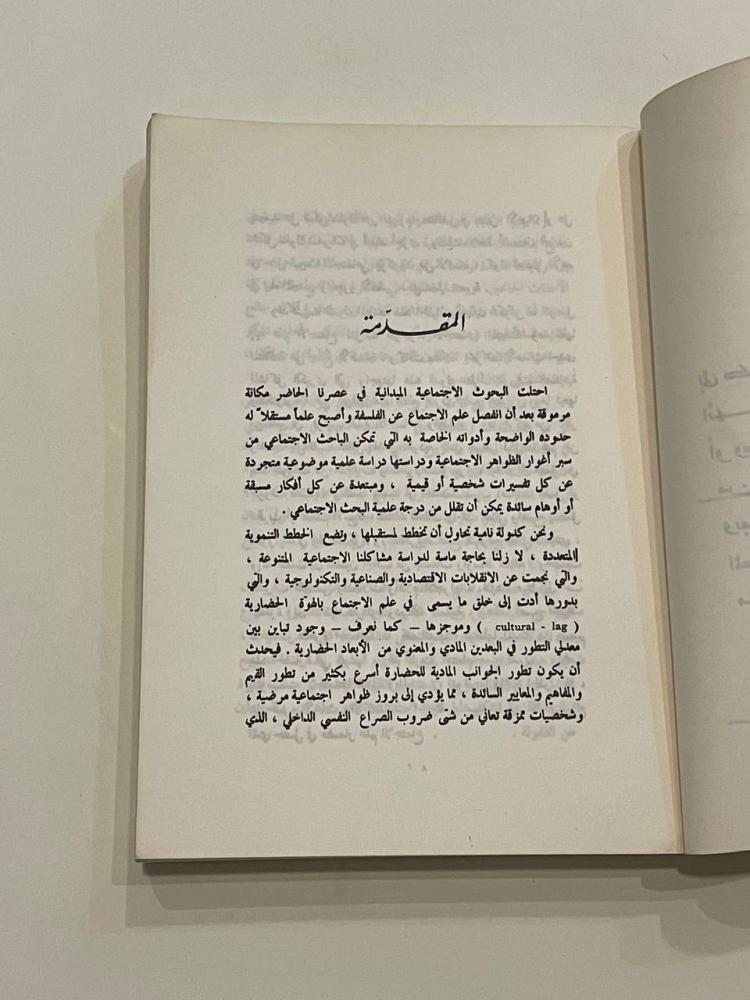 المقدّمة
احتلت البحوث الاجتماعية الميدانية في عصرنا الحاضر مكانة
مرموقة بعد أن انفصل علم الاجتماع عن الفلسفة وأصبح علماً مستقلاً له
حدوده الواضحة وأدواته الخاصة به التي تمكن الباحث الاجتماعي من
سبر أغوار الظواهر الاجتماعية ودراستها دراسة علمية موضوعية متجردة
عن كل تفسيرات شخصية أو قيمية ، ومبتعدة عن كل أفكار مسبقة
أو أوهام سائدة يمكن أن تقلل من درجة علمية البحث الاجتماعي .
ونحن كدولة نامية نحاول أن نخطط لمستقبلها ، وتضع الخطط التنموية
المتعددة ، لا زلنا بحاجة ماسة لدراسة مشاكلنا الاجتماعية المتنوعة ،
والتي نجمت عن الانقلابات الاقتصادية والصناعية والتكنولوجية ، والتي
بدورها أدت إلى خلق ما يسمى في علم الاجتماع بالهوّة الحضارية
( cultural - lag ) وموجزها — كما نعرف — وجود تباين بين
معدلي التطور في البعدين المادي والمعنوي من الأبعاد الحضارية . فيحدث
أن يكون تطور الجوانب المادية للحضارة أسرع بكثير من تطور القيم
والمفاهيم والمعايير السائدة ، مما يؤدي إلى بروز ظواهر اجتماعية مرضية ،
وشخصيات ممزقة تعاني من شتى ضروب الصراع النفسي الداخلي ، الذي